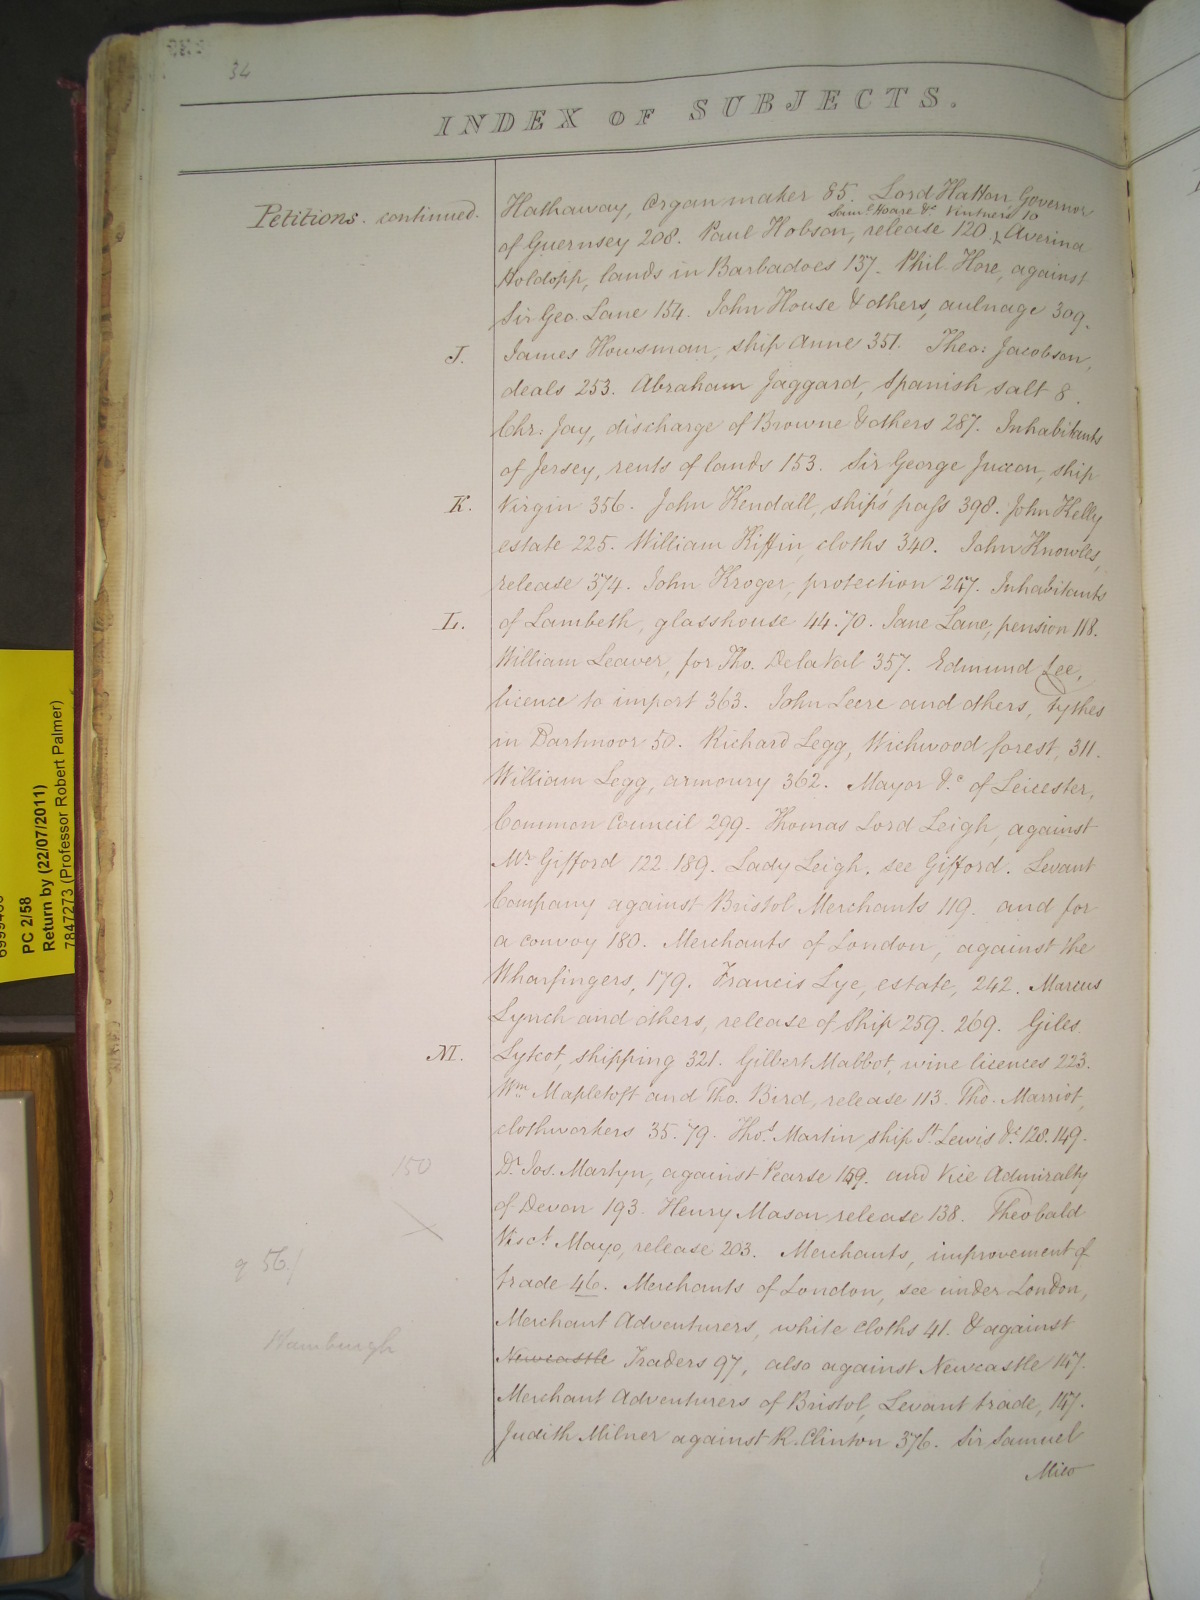 34
INDEX OF SUBJECTS.
Petitions. continued.
Hathaway, Organ maker 85. Lord Hatton Governor
Saml. Hoare &c. Vintners 10
of Guernsey 208. Paul Hobson, release 120. Averina
Holdopp, lands in Barbadoes 137. Phil. Hore, against
Sir Geo. Lane 154. John House & others, aulnage 309.
J.
James Howsman, ship Anne 351. Theo: Jacobson,
deals 253. Abraham Jaggard, Spanish salt 8.
Chr: Jay, discharge of Browne & others 287. Inhabitants
of Jersey, rents of lands 153. Sir George Juxon, ship
K.
Virgin 356. John Kendall, ship's pass 398. John Kelly
estate 225. William Kiffin, cloths 340. John Knowles,
release 374. John Kroger, protection 247. Inhabitants
L.
of Lambeth, glasshouse 44. 70. Jane Lane, pension 118.
William Leaver, for Tho. Delavail 357. Edmund Lee,
licence to import 363. John Leere and others, Tythes
in Dartmoor 50. Richard Legg, Wichwood forest, 311.
William Legg, armoury 362. Mayor &c of Leicester,
Common Council 299. Thomas Lord Leigh, against
Mr. Gifford 122. 189. Lady Leigh, see Gifford. Levant
Company against Bristol Merchants 119. and for
a convoy 180. Merchants of London, against the
Wharfingers, 179. Francis Lye, estate, 242. Marcus
Lynch and others, release of Ship 259. 269. Giles
M.
Lytcot, shipping 321. Gilbert Mabbot, wine licences 223.
Wm. Mapletoft and Tho. Bird, release 113. Tho. Marriot,
clothworkers 35. 79. Thos. Martin ship St. Lewis &c 128. 149.
150
Dr. Jos. Martyn, against Pearse 159. and Vice Admiralty
of Devon 193. Henry Mason release 138. Theobald
Visct. Mayo, release 203. Merchants, improvement of
q 56/
trade 46. Merchants of London, see under London,
Merchant Adventurers, white cloths 41. & against
Hamburgh
Newcastle Traders 97, also against Newcastle 147.
Merchant Adventurers of Bristol, Levant trade, 147.
Judith Milner against R. Clinton 376. Sir Samuel
Mico
PC 2/58
Return by (22/07/2011)
7847273 (Professor Robert Palmer)